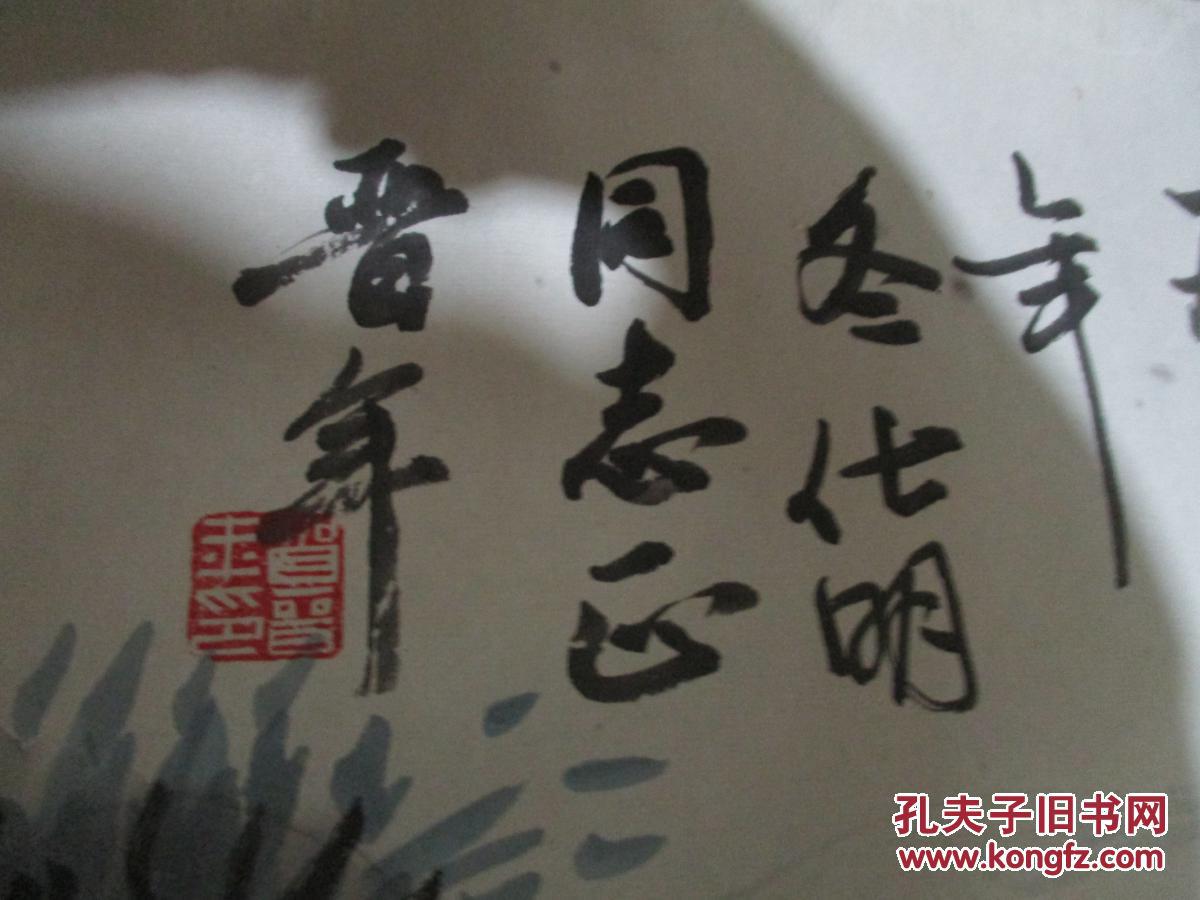 年
冬仕明
同志正
晋年
孔夫子旧书网
www.kongfz.com